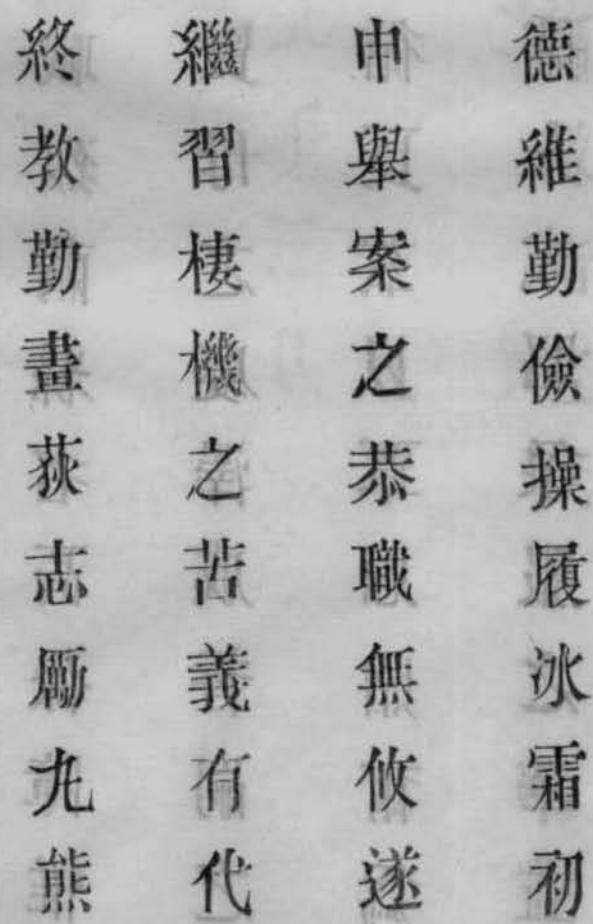 德維勤儉操履冰霜初
申舉案之恭職無攸遂
繼習棲機之苦義有代
終教勤畫荻志勵丸熊